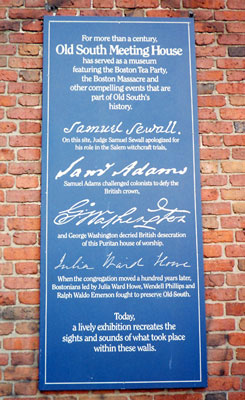 For more than a century,
Old South Meeting House
has served as a museum
featuring the Boston Tea Party,
the Boston Massacre and
other compelling events that are
part of Old South's
history.
Samuel Sewall.
On this site, Judge Samuel Sewall apologized for
his role in the Salem witchcraft trials,
Saml Adams
Samuel Adams challenged colonists to defy the
British crown,
G Washington
and George Washington decried British desecration
of this Puritan house of worship.
Julia Ward Howe
When the congregation moved a hundred years later,
Bostonians led by Julia Ward Howe, Wendell Phillips and
Ralph Waldo Emerson fought to preserve Old South.
Today,
a lively exhibition recreates the
sights and sounds of what took place
within these walls.